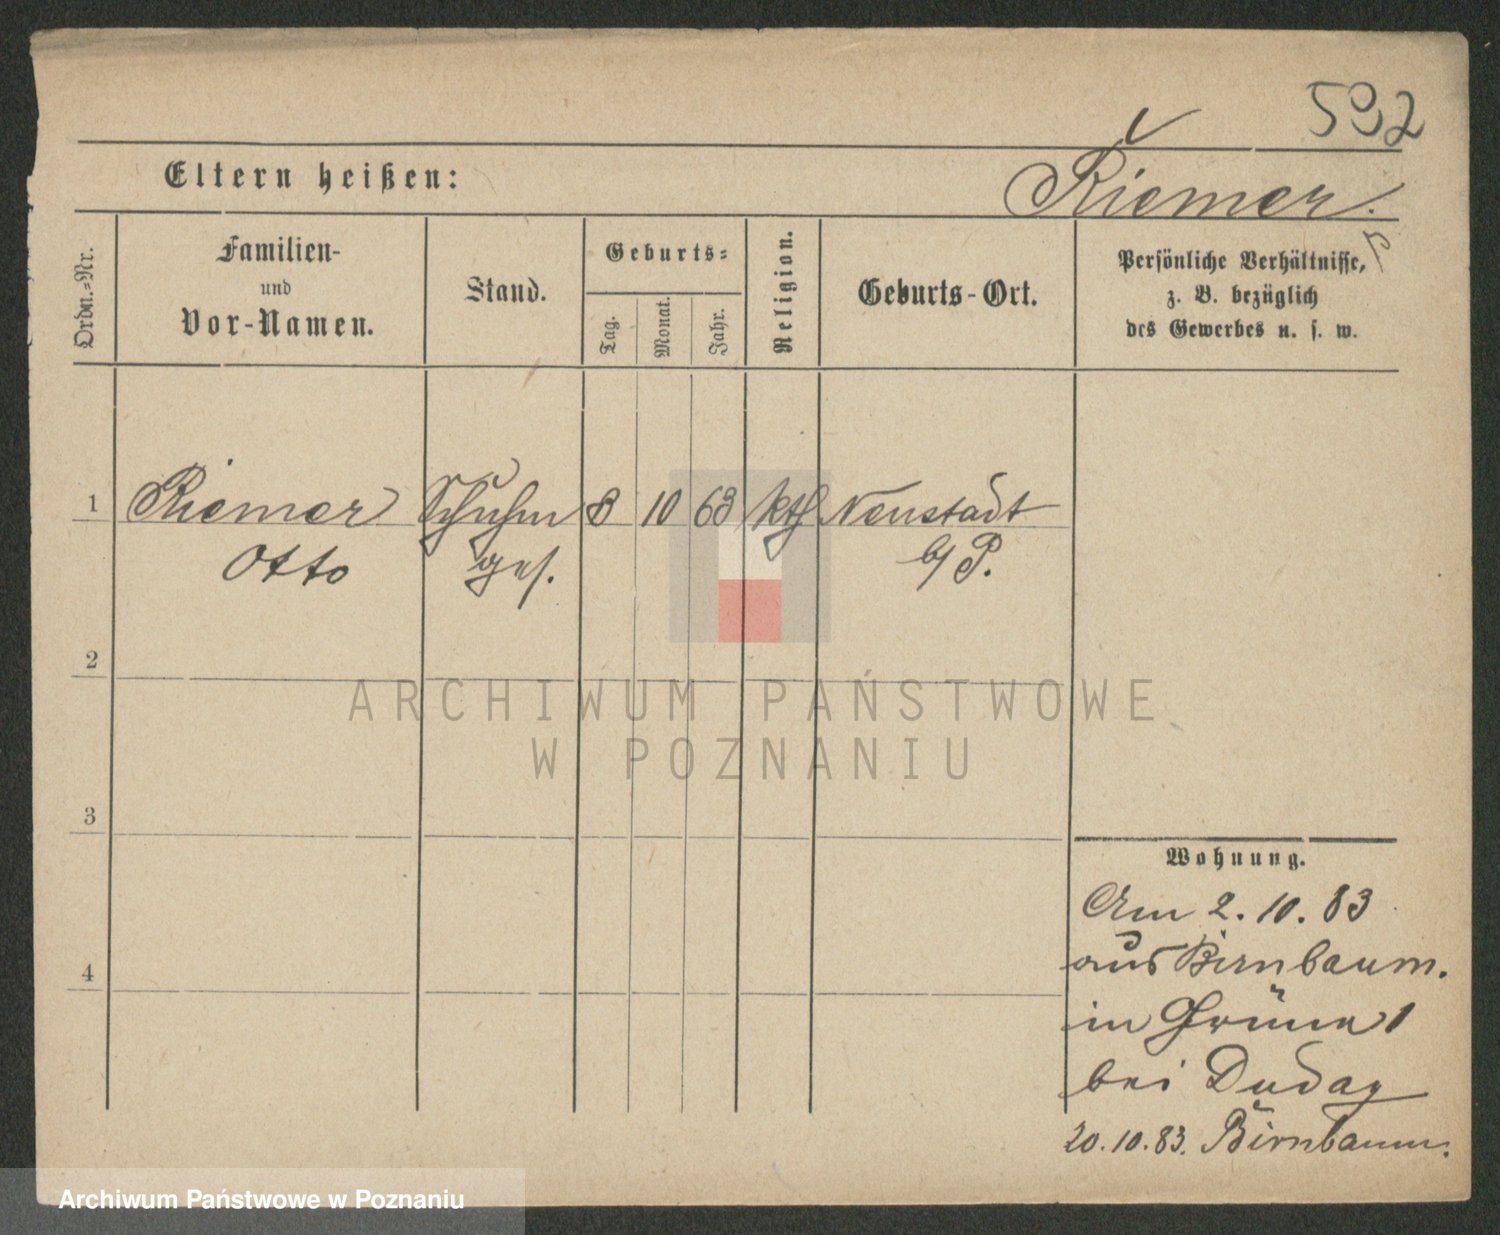 592
Eltern heißen:
Riemer.
Ordn.-Nr.
Familien-
und
Vor-Namen.
Stand.
Geburts-
Tag.
Monat.
Jahr.
Religion.
Geburts-Ort.
Persönliche Verhältnisse,
z. B. bezüglich
des Gewerbes u. s. w.
1 Riemer Schuhm 8 10 63 kth Neustadt
Otto ges. b/ P.
2
3
4
Wohnung.
Am 2. 10. 83
aus Birnbaum.
in Grüne 1
bei Duday
20. 10. 83. Birnbaum.
ARCHIWUM PAŃSTWOWE
W POZNANIU
Archiwum Państwowe w Poznaniu